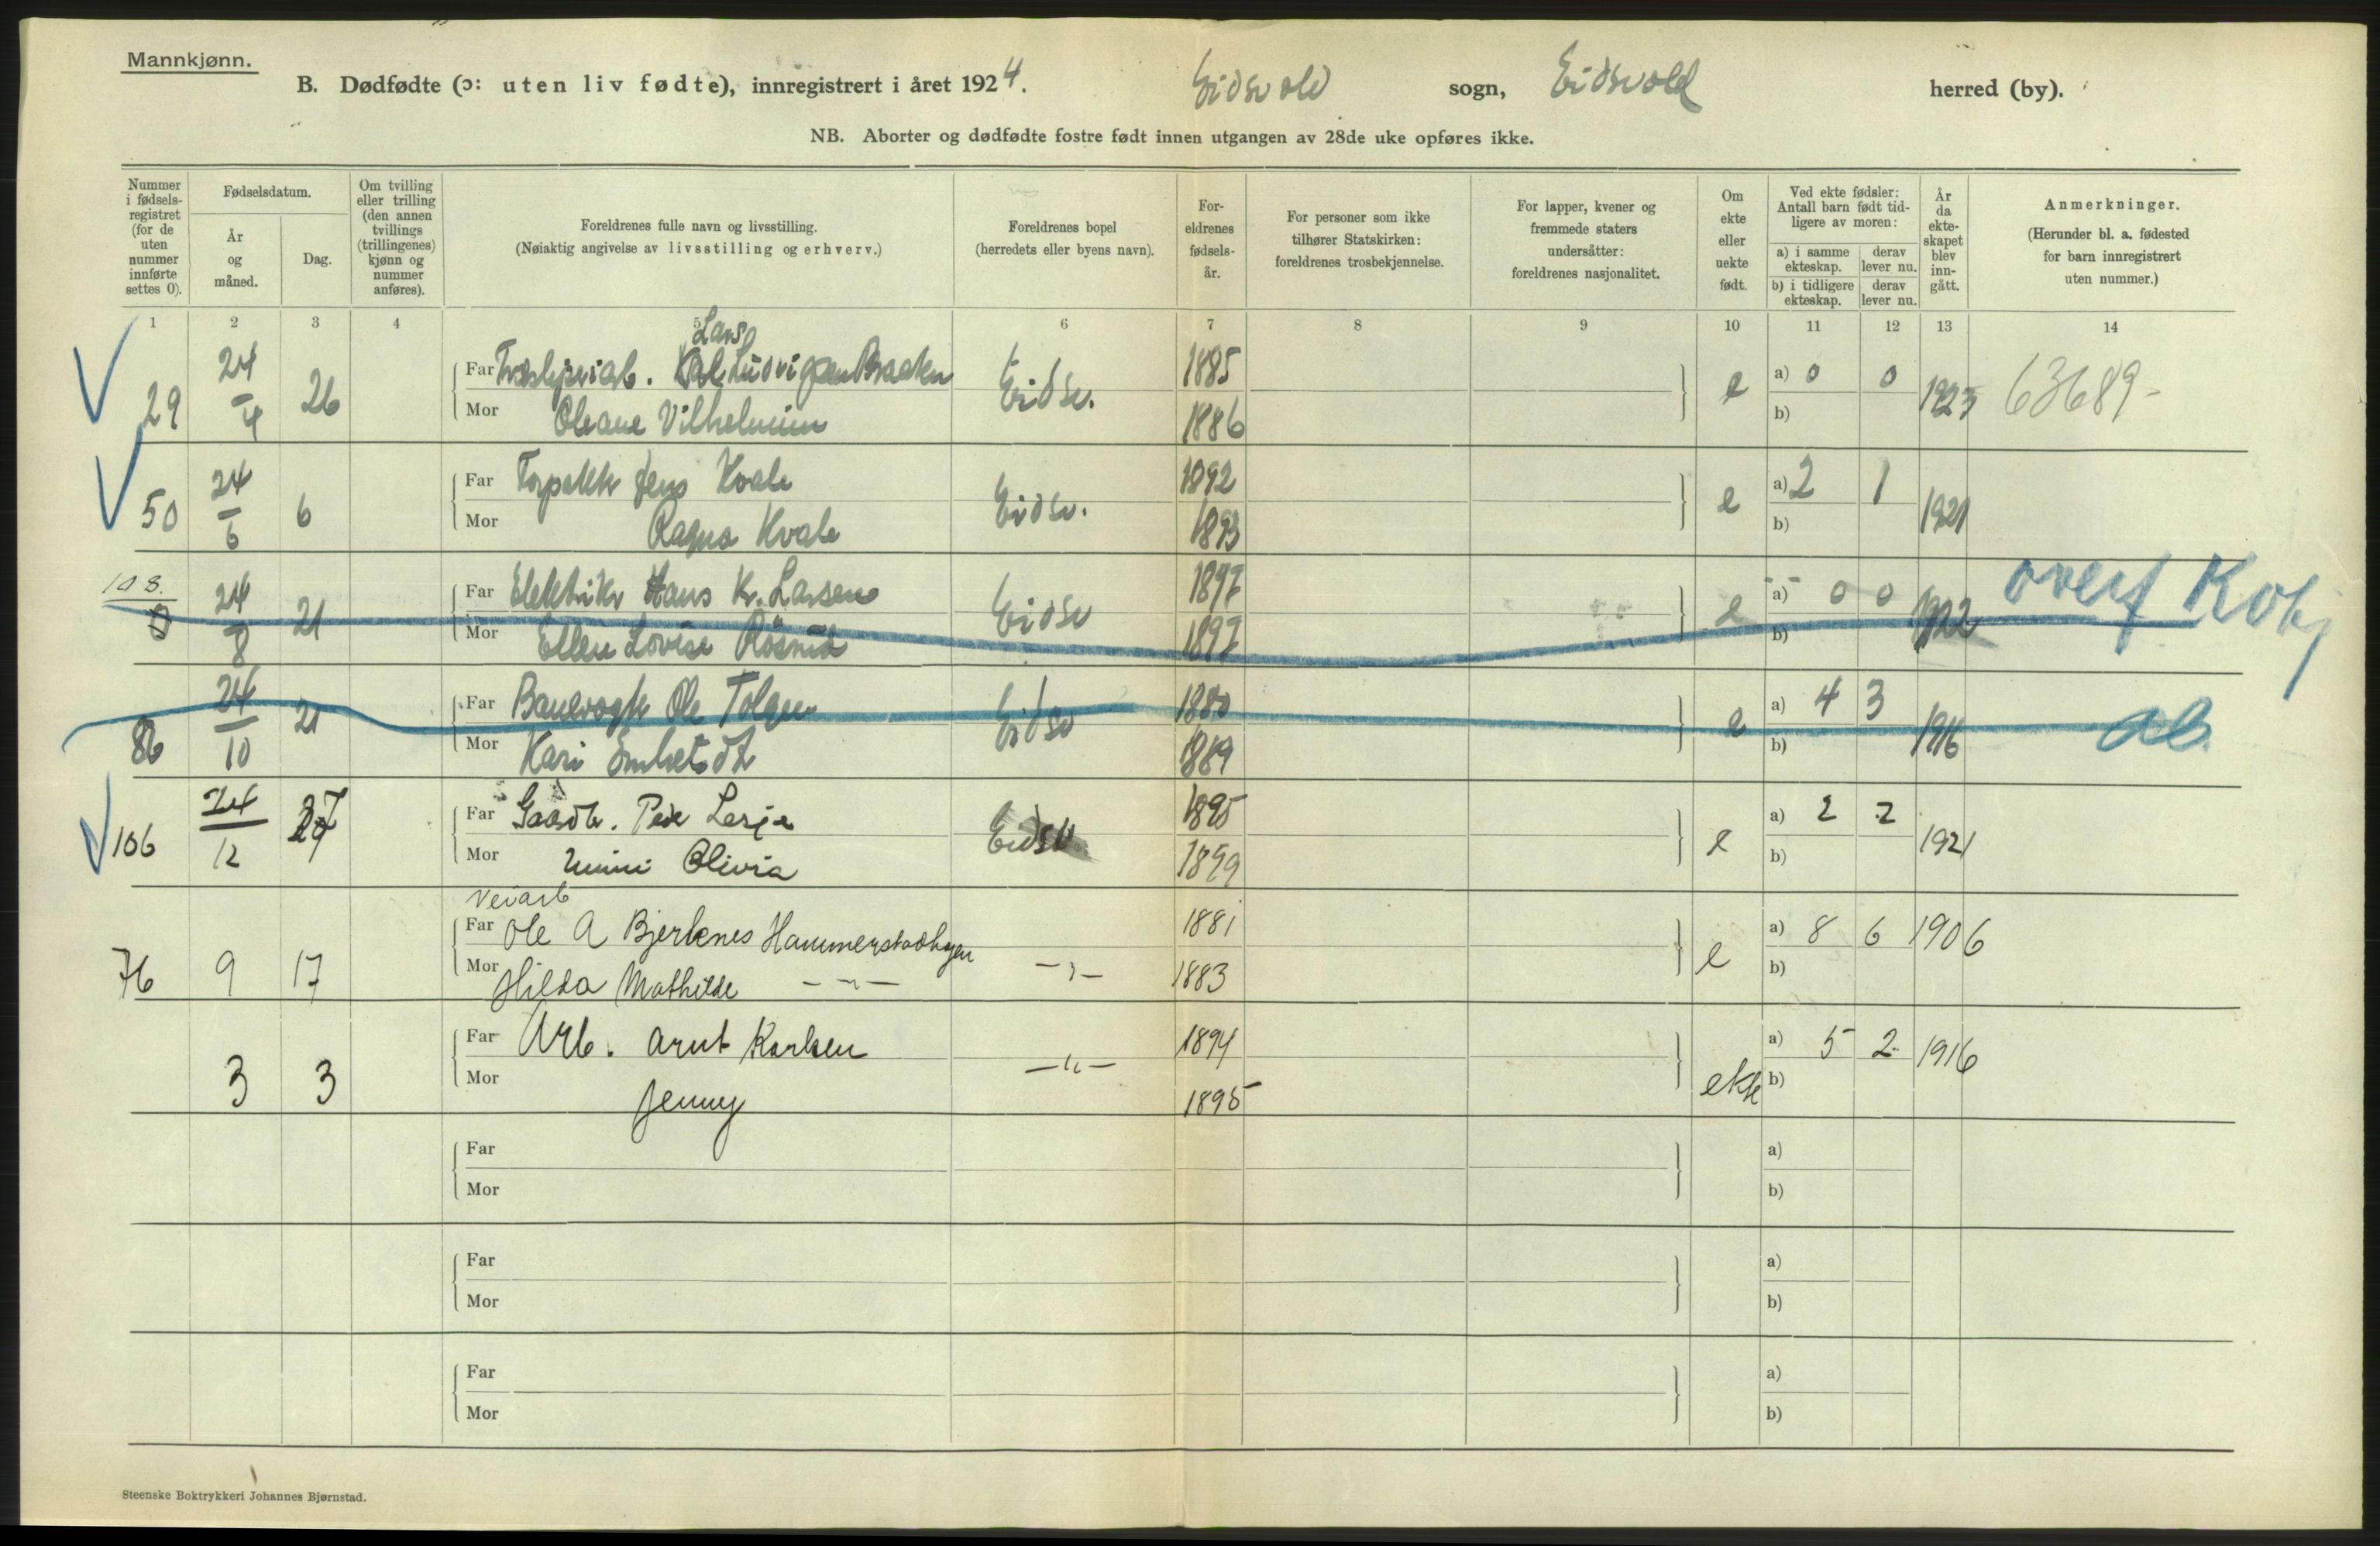 Mannkjønn.
B. Dødfødte (ɔ: uten liv fødte), innregistrert i året 1924. Eidsvold sogn, Eidsvold herred (by).
NB. Aborter og dødfødte fostre født innen utgangen av 28de uke opføres ikke.
Nummer i fødselsregistret (for de uten nummer innførte settes 0).
Fødselsdatum.
År og måned.
Dag.
Om tvilling eller trilling (den annen tvillings (trillingenes) kjønn og nummer anføres).
Foreldrenes fulle navn og livsstilling.
(Nøiaktig angivelse av livsstilling og erhverv.)
Foreldrenes bopel
(herredets eller byens navn).
Foreldrenes fødselsår.
For personer som ikke tilhører Statskirken: foreldrenes trosbekjennelse.
For lapper, kvener og fremmede staters undersåtter: foreldrenes nasjonalitet.
Om ekte eller uekte født.
Ved ekte fødsler: Antall barn født tidligere av moren:
a) i samme ekteskap. derav lever nu.
b) i tidligere ekteskap. derav lever nu.
År da ekteskapet blev inngått.
Anmerkninger.
(Herunder bl. a. fødested for barn innregistrert uten nummer.)
1 2 3 4 5 6 7 8 9 10 11 12 13 14
Lars
29 24/4 26 Far Ludvigsen Braaten Eidsv. 1885 e a) 0 0 1923 63689-
Mor Oleane Vilhelmine 1886 b)
50 24/6 6 Far Jens Kvale Eidsv. 1892 e a) 2 1 1921
Mor Ragna Kvale 1893 b)
108.
0 24/8 21 Far Elektriker Hans Kr. Larsen Eidsv 1897 e a) 0 0 1922 overf
Mor Ellen Lovise 1897 b)
86 24/10 21 Far Banevogt Ole Tolgen Eidsv 1880 e a) 4 3 1916
Mor Kari 1889 b)
106 24/12 27 Far Gaardbr. Peder Eidsv 1895 e a) 2 2 1921
Mor Olivia 1899 b)
Veiarb
76 9 17 Far Ole A Bjerknes Hammerstadhagen -"- 1881 e a) 8 6 1906
Mor Hilda Mathilde -"- 1883 b)
3 3 Far Arb. Arnt Karlsen -"- 1894 ekte a) 5 2 1916
Mor Jenny 1895 b)
Far a)
Mor b)
Far a)
Mor b)
Far a)
Mor b)
Steenske Boktrykkeri Johannes Bjørnstad.